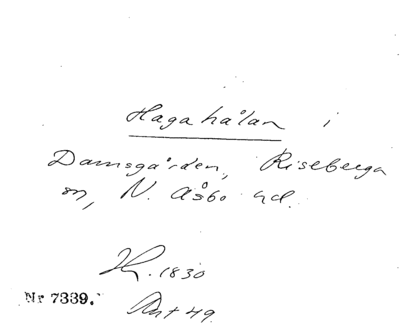 Hagahålan i
Damsgården, Riseberga
sn, N. Åsbo hd.
1830
Nr 7339.
Ant 49